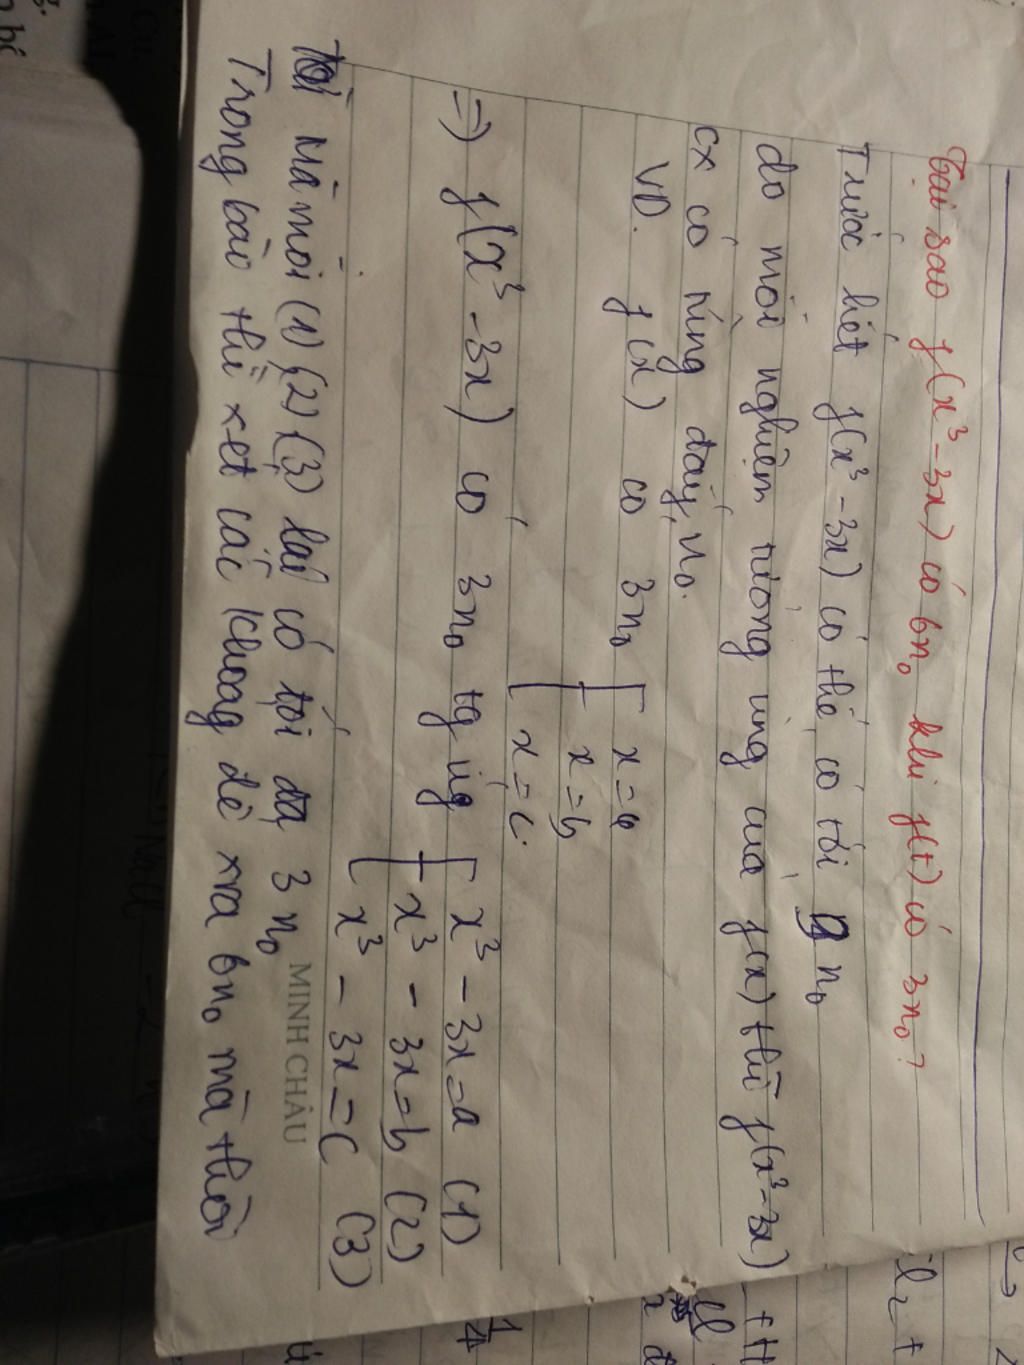 Tại sao f(x³-3x) có 6n₀ khi f(t) có 3n₀?
Trước hết f(x³-3x) có thể có tới 9 n₀
do mỗi nghiệm tương ứng của f(x) thì f(x³-3x)
cx có ứng đấy n₀.
VD. f(x) có 3n₀ [ x=a
x=b
x=c.
=> f(x³-3x) có 3n₀ tg ứg [ x³-3x=a (1)
x³-3x=b (2)
x³-3x=c (3)
Mà mỗi (1) (2) (3) lại có tối đa 3 n₀
MINH CHÂU
Trong bào thì xét các khoảng để xra 6n₀ mà thôi